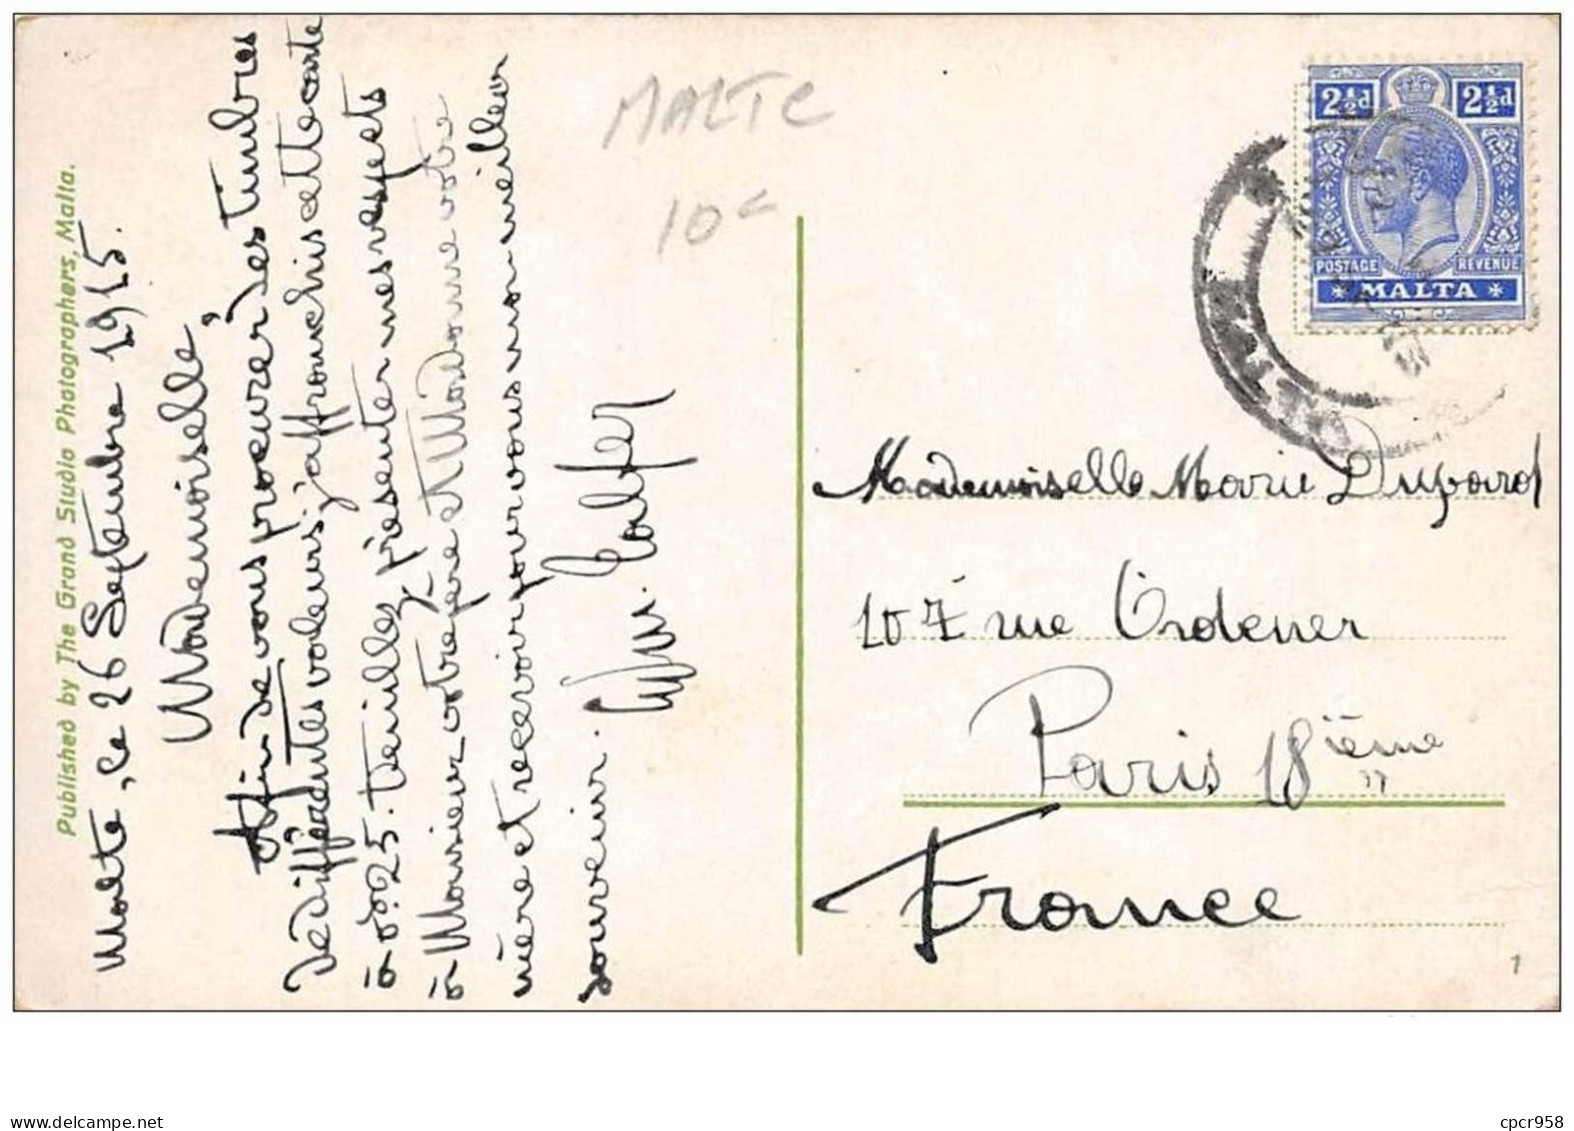 Published by The Grand Studio Photographers, Malta.
Malte, le 26 Septembre 1915.
Mademoiselle,
Afin de vous procurer des timbres
de différentes valeurs, j'affranchis cette carte
à 0f.25. Veuillez présenter mes respects
à Monsieur votre père et Madame votre
mère et recevoir pour vous mon meilleur
souvenir.
MALTE
10c
2½d 2½d
POSTAGE REVENUE
MALTA
Mademoiselle Marie Dupard
107 rue Ordener
Paris 18ième
France
1
My ebay store
cpcr958